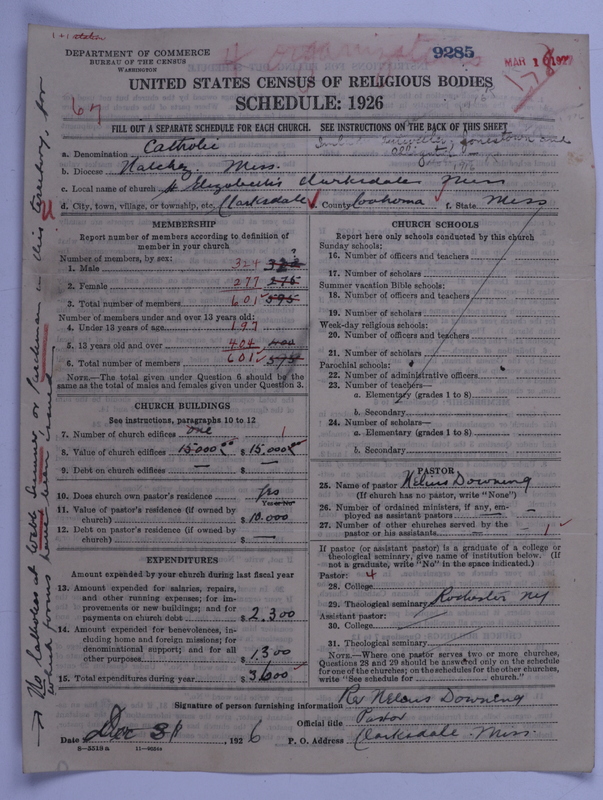 1+1 station
DEPARTMENT OF COMMERCE
BUREAU OF THE CENSUS
WASHINGTON
9285
MAR 10 1927
UNITED STATES CENSUS OF RELIGIOUS BODIES
SCHEDULE: 1926
67
FILL OUT A SEPARATE SCHEDULE FOR EACH CHURCH. SEE INSTRUCTIONS ON THE BACK OF THIS SHEET
a. Denomination Catholic
b. Diocese Natchez Miss.
c. Local name of church St Elizabeth's Clarksdale Miss
d. City, town, village, or township, etc. Clarksdale County Coahoma f. State Miss
MEMBERSHIP
Report number of members according to definition of
member in your church
Number of members, by sex:
1. Male 324
2. Female 277 275
3. Total number of members 601 595
Number of members under and over 13 years old:
4. Under 13 years of age 197
5. 13 years old and over 404 400
6. Total number of members 601 575
NOTE.—The total given under Question 6 should be the
same as the total of males and females given under Question 3.
CHURCH BUILDINGS
See instructions, paragraphs 10 to 12
7. Number of church edifices One 1
8. Value of church edifices 15.000 $ 15,000
9. Debt on church edifices — $ —
10. Does church own pastor's residence Yes
Yes or No
11. Value of pastor's residence (if owned by
church) $ 10.000
12. Debt on pastor's residence (if owned by
church) $ —
EXPENDITURES
Amount expended by your church during last fiscal year
13. Amount expended for salaries, repairs,
and other running expenses; for im-
provements or new buildings; and for
payments on church debt $ 2.300
14. Amount expended for benevolences, in-
cluding home and foreign missions; for
denominational support; and for all
other purposes $ 1.300
15. Total expenditures during year $ 3600
CHURCH SCHOOLS
Report here only schools conducted by this church
Sunday schools:
16. Number of officers and teachers
17. Number of scholars
Summer vacation Bible schools:
18. Number of officers and teachers
19. Number of scholars
Week-day religious schools:
20. Number of officers and teachers
21. Number of scholars
Parochial schools:
22. Number of administrative officers
23. Number of teachers—
a. Elementary (grades 1 to 8)
b. Secondary
24. Number of scholars—
a. Elementary (grades 1 to 8)
b. Secondary
PASTOR
25. Name of pastor Nelius Downing
(If church has no pastor, write "None")
26. Number of ordained ministers, if any, em-
ployed as assistant pastors —
27. Number of other churches served by the
pastor or his assistants — 1
If pastor (or assistant pastor) is a graduate of a college or
theological seminary, give name of institution below. (If
not a graduate, write "No" in the space indicated.)
Pastor: 4
28. College
29. Theological seminary Rochester NY
Assistant pastor:
30. College
31. Theological seminary
NOTE.—Where one pastor serves two or more churches,
Questions 28 and 29 should be answered only on the schedule
for one of the churches; on the schedules for the other churches,
write "See schedule for church."
Signature of person furnishing information Rev Nelius Downing
Official title Pastor
Date Dec 31, 1926 P. O. Address Clarksdale Miss.
8—5513a 11—90544